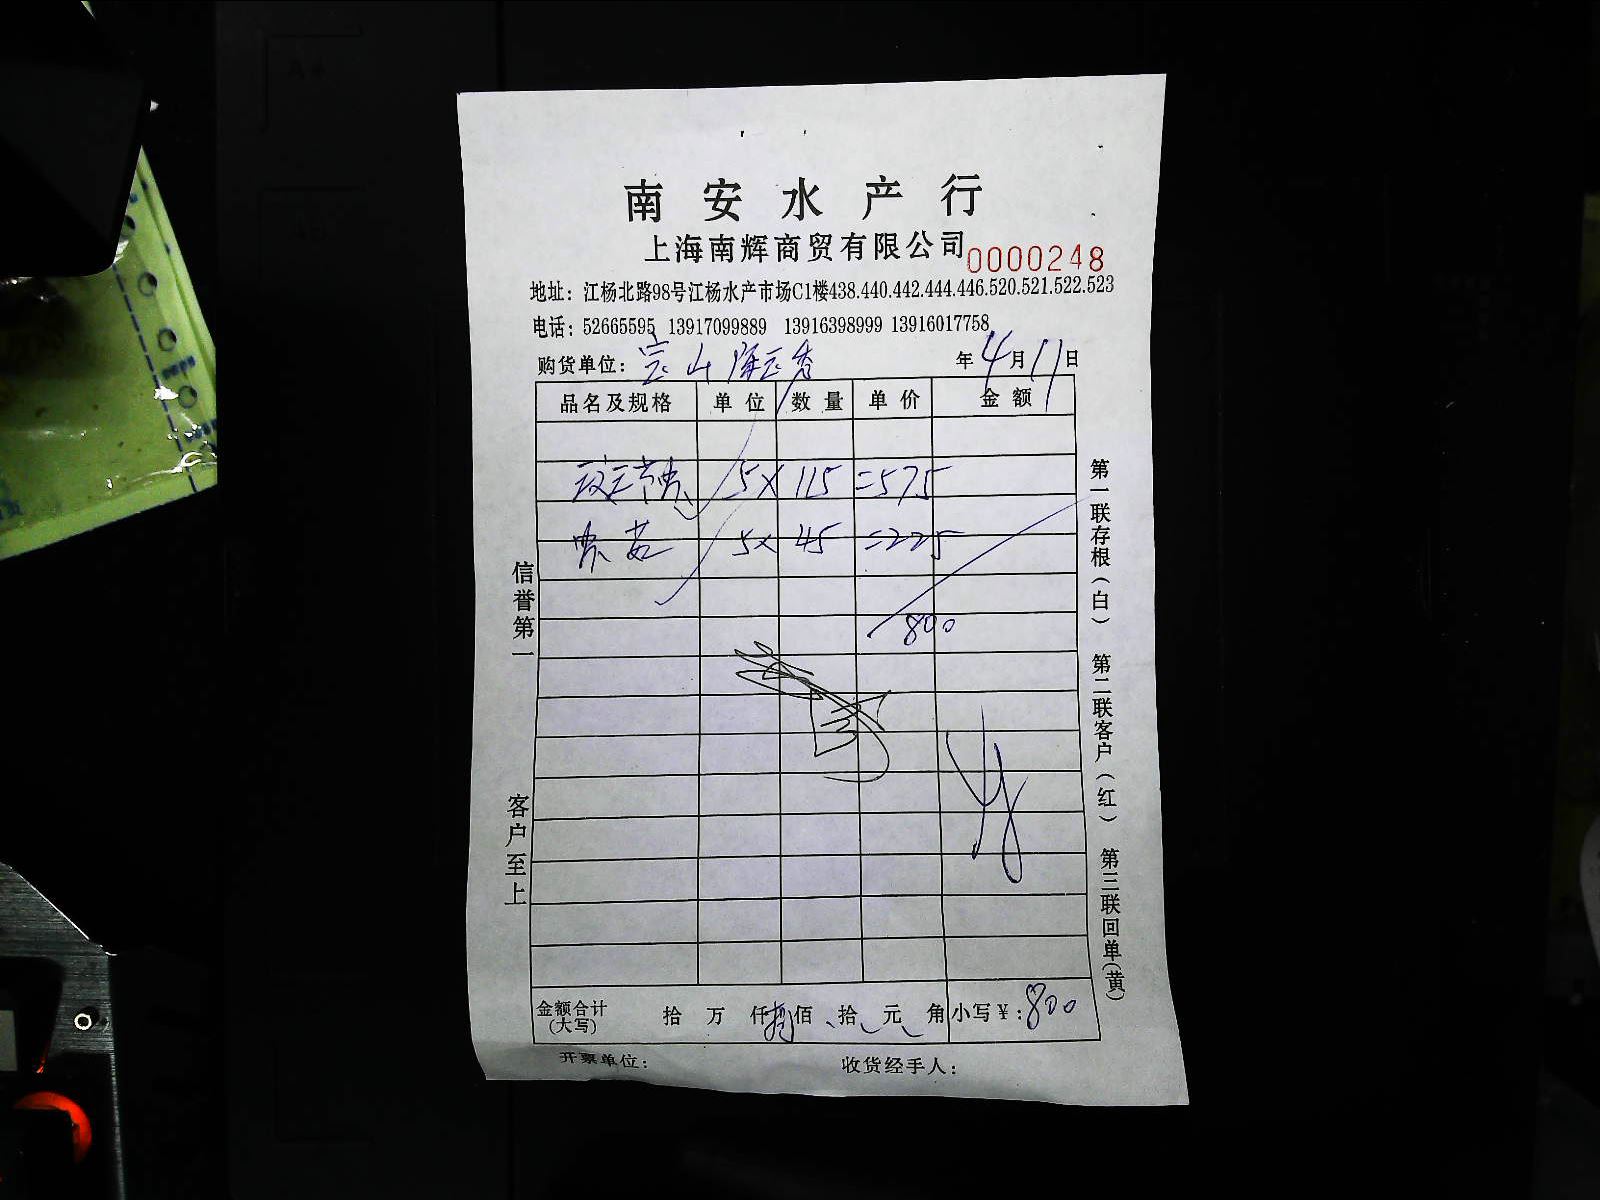 南安水产行
上海南辉商贸有限公司 0000248
地址：江杨北路98号江杨水产市场C1楼438.440.442.444.446.520.521.522.523
电话：52665595 13917099889 13916398999 13916017758
购货单位：宝山 年4月11日
品名及规格 单位 数量 单价 金额
5× 115 =575
5× 45 =225
800
金额合计(大写) 拾 万 仟捌佰 拾 元 角 小写￥：800
开票单位： 收货经手人：
信誉第一
客户至上
第一联存根（白） 第二联客户（红） 第三联回单(黄)